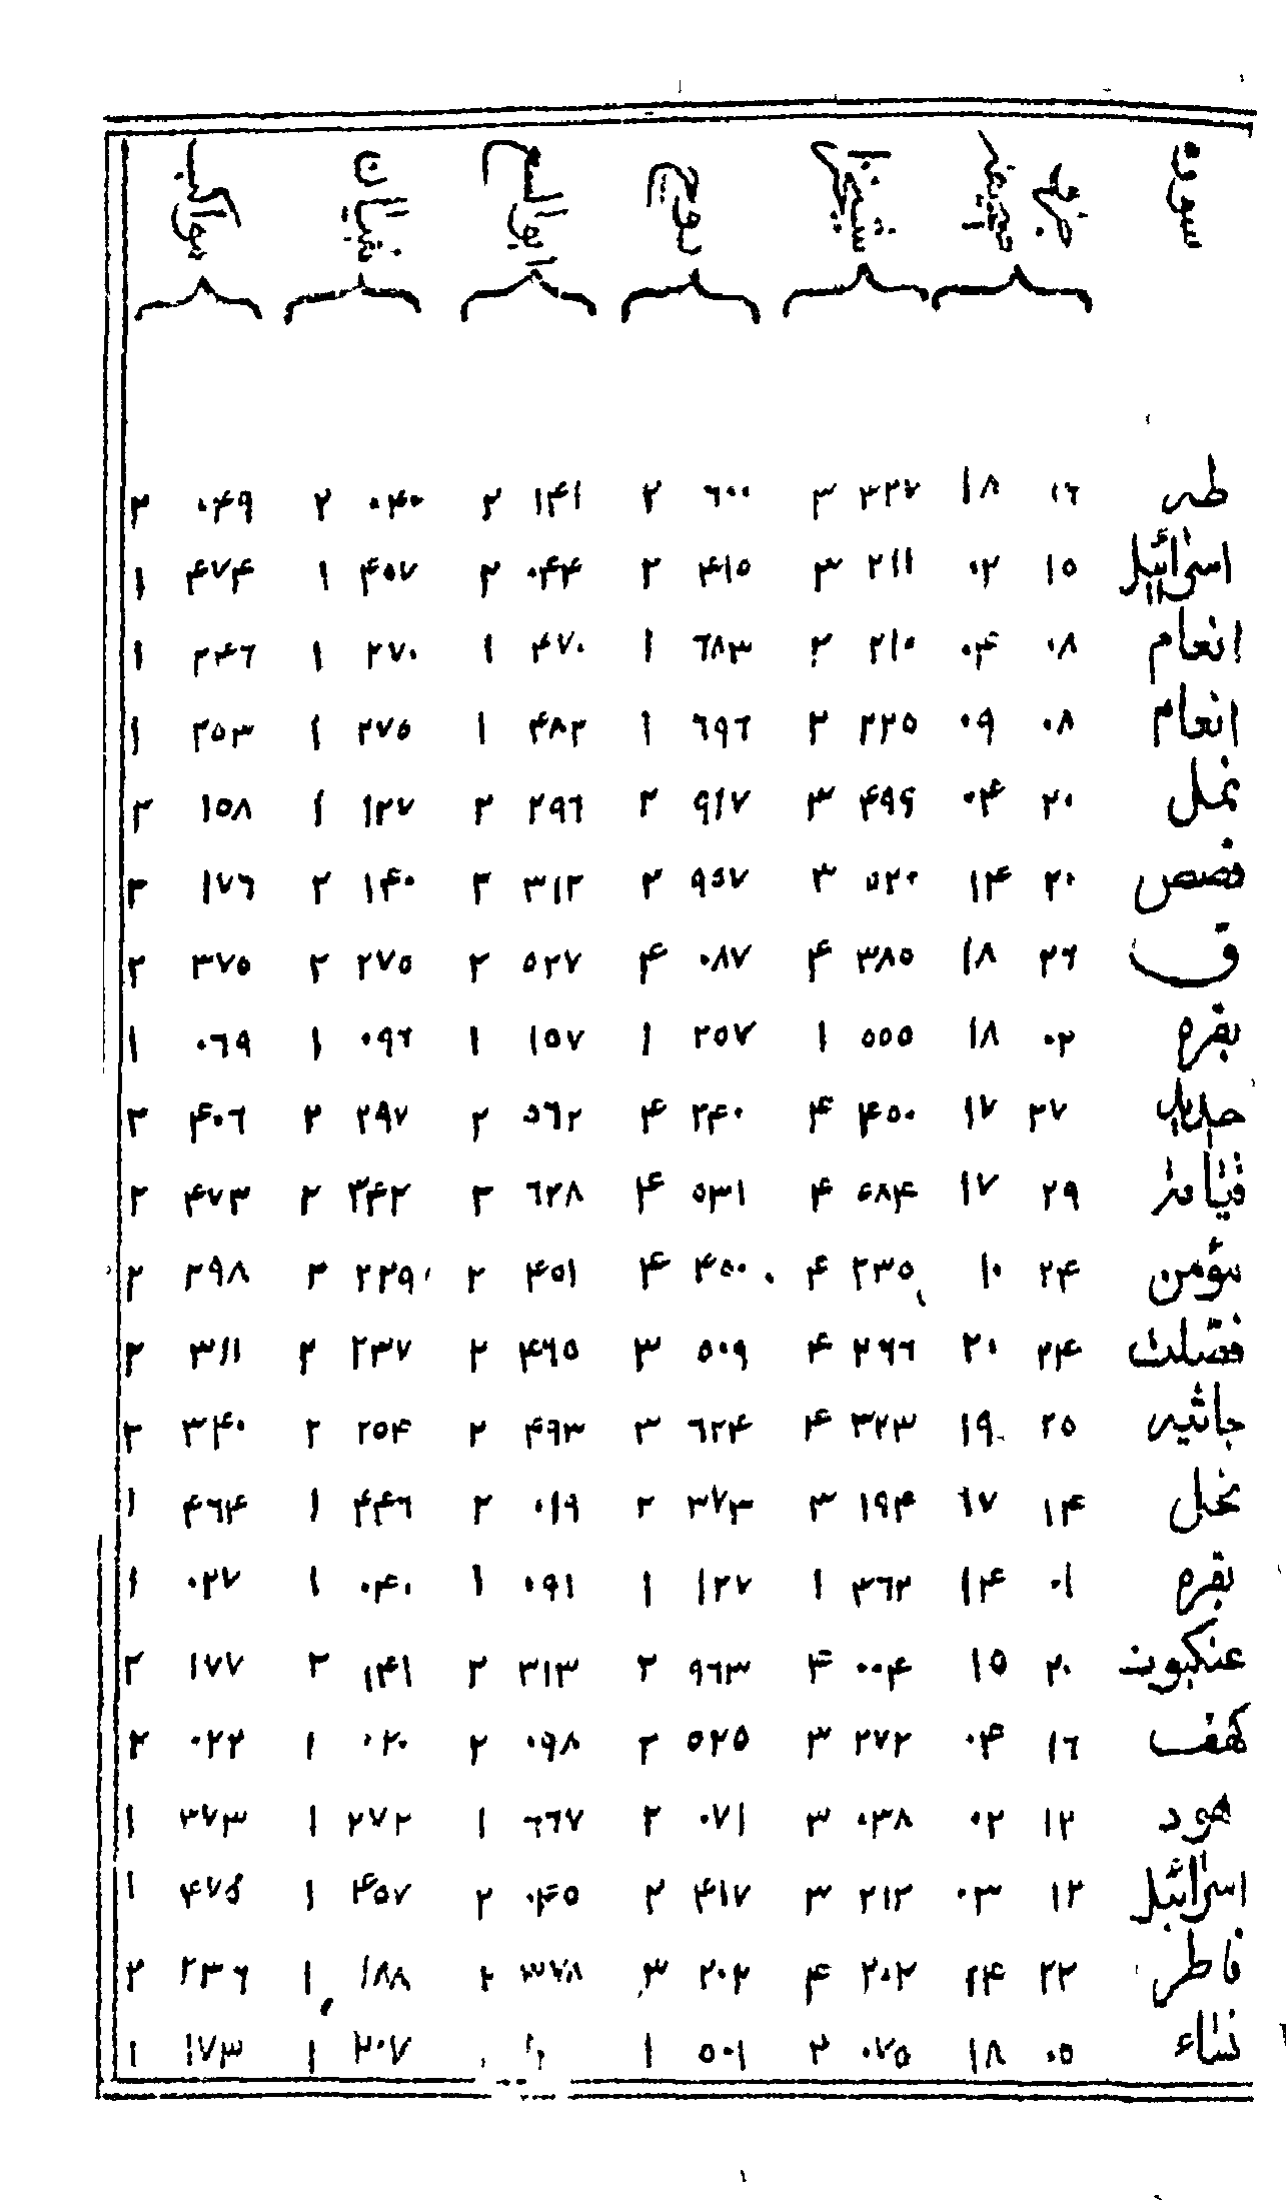 سورة
طه ۱٦ ۱۸ ۳۲۷ ۳ ٦۰۰ ۲ ۱۴۱ ۲ ۰۴۰ ۲ ۰۴۹ ۲
اسرائیل ۱۵ ۰۲ ۲۱۱ ۳ ۴۱۵ ۲ ۰۴۴ ۲ ۴۵۷ ۱ ۴۷۴ ۱
انعام ۰۸ ۰۴ ۲۱۰ ۲ ٦۸۳ ۱ ۴۷۰ ۱ ۲۷۰ ۱ ۲۴٦ ۱
انعام ۰۸ ۰۹ ۲۲۵ ۲ ٦۹٦ ۱ ۴۸۲ ۱ ۲۷۵ ۱ ۲۵۳ ۱
نمل ۲۰ ۰۴ ۴۹۹ ۳ ۹۱۷ ۲ ۲۹٦ ۲ ۱۲۷ ۱ ۱۵۸ ۲
قصص ۲۰ ۱۴ ۵۲۰ ۳ ۹۵۷ ۲ ۳۱۲ ۲ ۱۴۰ ۲ ۱۷٦ ۲
ق ۲٦ ۱۸ ۳۸۵ ۴ ۰۸۷ ۴ ۵۲۷ ۲ ۲۷۵ ۲ ۳۷۵ ۲
بقره ۰۲ ۱۸ ۵۵۵ ۱ ۲۵۷ ۱ ۱۵۷ ۱ ۰۹٦ ۱ ۰٦۹ ۱
حدید ۲۷ ۱۷ ۴۵۰ ۴ ۲۴۰ ۴ ۵٦۲ ۲ ۲۹۷ ۲ ۴۰٦ ۲
قیامة ۲۹ ۱۷ ۵۸۴ ۴ ۵۳۱ ۴ ٦۲۸ ۲ ۳۴۲ ۲ ۴۷۳ ۲
مؤمن ۲۴ ۱۰ ۲۳۵ ۴ ۴۵۰ ۴ ۴۵۱ ۲ ۲۲۹ ۲ ۲۹۸ ۲
فصّلت ۲۴ ۲۰ ۲٦٦ ۴ ۵۰۹ ۳ ۴٦۵ ۲ ۲۳۷ ۲ ۳۱۱ ۲
جاثیه ۲۵ ۱۹ ۳۲۳ ۴ ٦۲۴ ۳ ۴۹۳ ۲ ۲۵۴ ۲ ۳۴۰ ۲
نحل ۱۴ ۱۷ ۱۹۴ ۳ ۳۷۳ ۲ ۰۱۹ ۲ ۴۴٦ ۱ ۴٦۴ ۱
بقره ۰۱ ۱۴ ۳٦۲ ۱ ۱۲۷ ۱ ۰۹۱ ۱ ۰۴۰ ۱ ۰۲۷ ۱
عنکبوت ۲۰ ۱۵ ۰۰۴ ۴ ۹٦۳ ۲ ۳۱۳ ۲ ۱۴۱ ۲ ۱۷۷ ۲
کهف ۱٦ ۰۴ ۲۷۲ ۳ ۵۲۵ ۲ ۰۹۸ ۲ ۰۲۰ ۱ ۰۲۲ ۲
هود ۱۲ ۰۲ ۰۳۸ ۳ ۰۷۱ ۲ ٦٦۷ ۱ ۲۷۲ ۱ ۳۷۳ ۱
اسرائیل ۱۲ ۰۳ ۲۱۲ ۳ ۴۱۷ ۲ ۰۴۵ ۲ ۴۵۷ ۱ ۴۷۵ ۱
فاطر ۲۲ ۲۴ ۲۰۲ ۴ ۲۰۲ ۳ ۳۷۸ ۲ ۱۸۸ ۱ ۲۳٦ ۲
نساء ۰۵ ۱۸ ۰۷۵ ۲ ۵۰۱ ۱ ۲۰۷ ۱ ۱۷۳ ۱